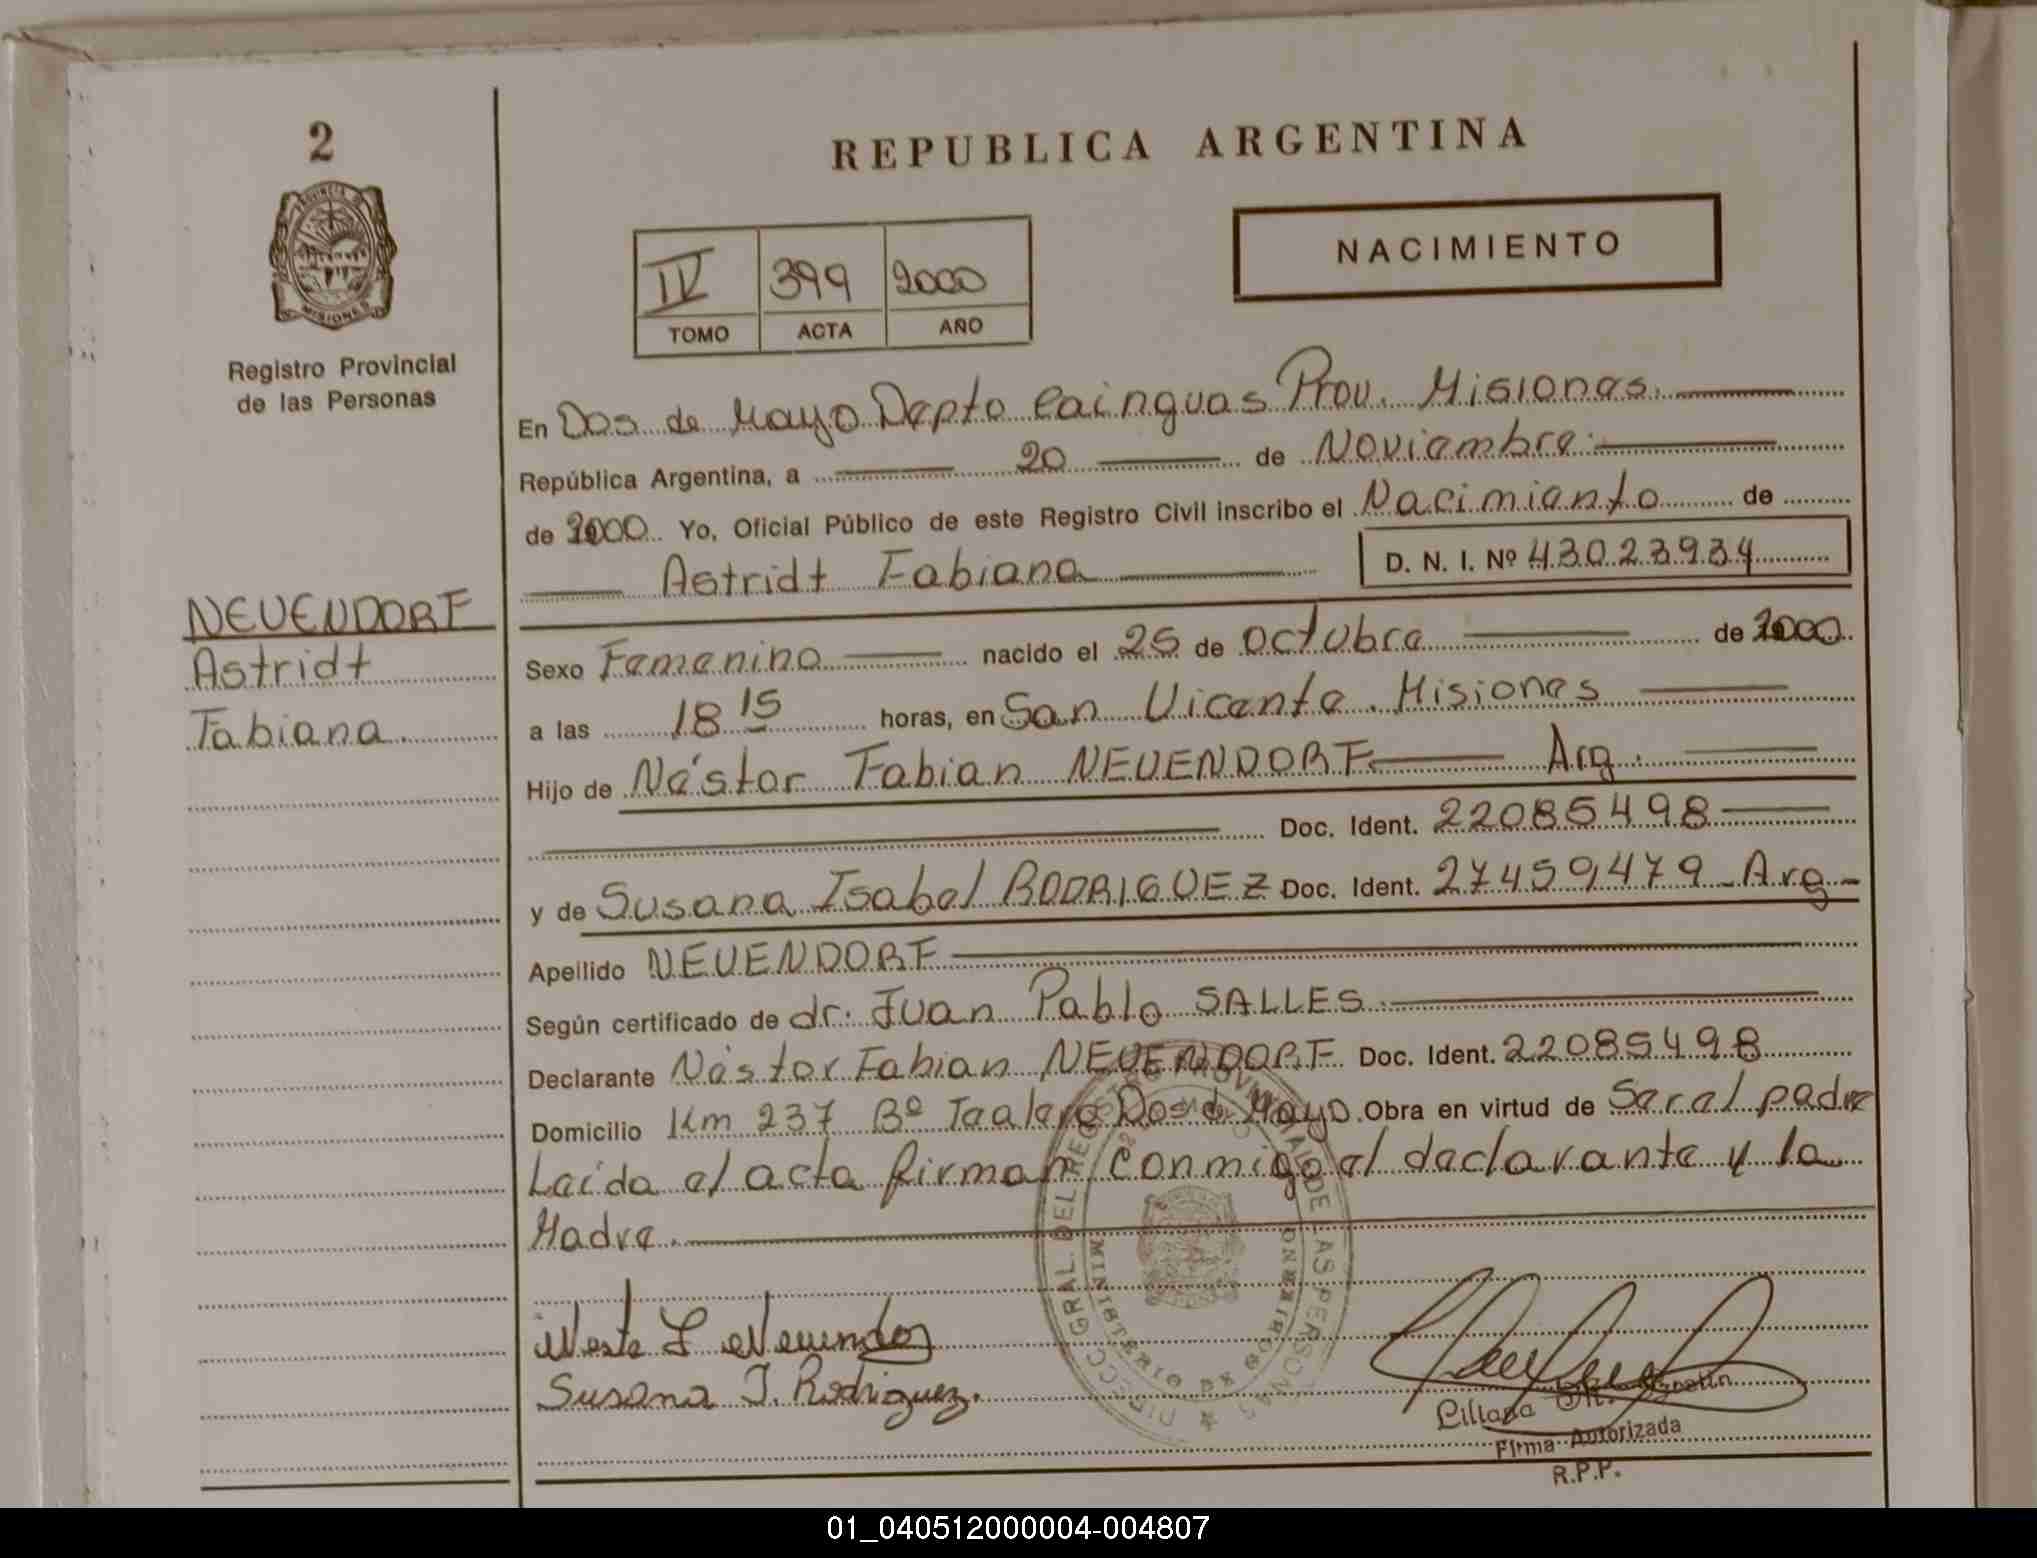 2
PROVINCIA DE
MISIONES
Registro Provincial
de las Personas
NEUENDORF
Astridt
Fabiana.
REPUBLICA ARGENTINA
IV 399 2000
TOMO ACTA AÑO
NACIMIENTO
En Dos de Mayo Depto Cainguas Prov. Misiones.
República Argentina, a 20 de Noviembre
de 2000. Yo, Oficial Público de este Registro Civil inscribo el Nacimiento de
Astridt Fabiana D. N. I. Nº 43023934
Sexo Femenino nacido el 25 de octubre de 2000
a las 18 15 horas, en San Vicente. Misiones
Hijo de Néstor Fabian NEUENDORF Arg.
Doc. Ident. 22085498
y de Susana Isabel RODRIGUEZ Doc. Ident. 27459479 - Arg -
Apellido NEUENDORF
Según certificado de dr. Juan Pablo SALLES.
Declarante Néstor Fabian NEUENDORF Doc. Ident. 22085498
Domicilio Km 237 Bº Dos d Mayo. Obra en virtud de Ser el padre
Leída el acta firman conmigo el declarante y la
Madre.
DIRECC. GRAL. DEL REGISTRO PROVINCIAL DE LAS PERSONAS
MINISTERIO DE GOBIERNO
Susana I. Rodriguez.
Liliana
Firma Autorizada
R.P.P.
01_040512000004-004807